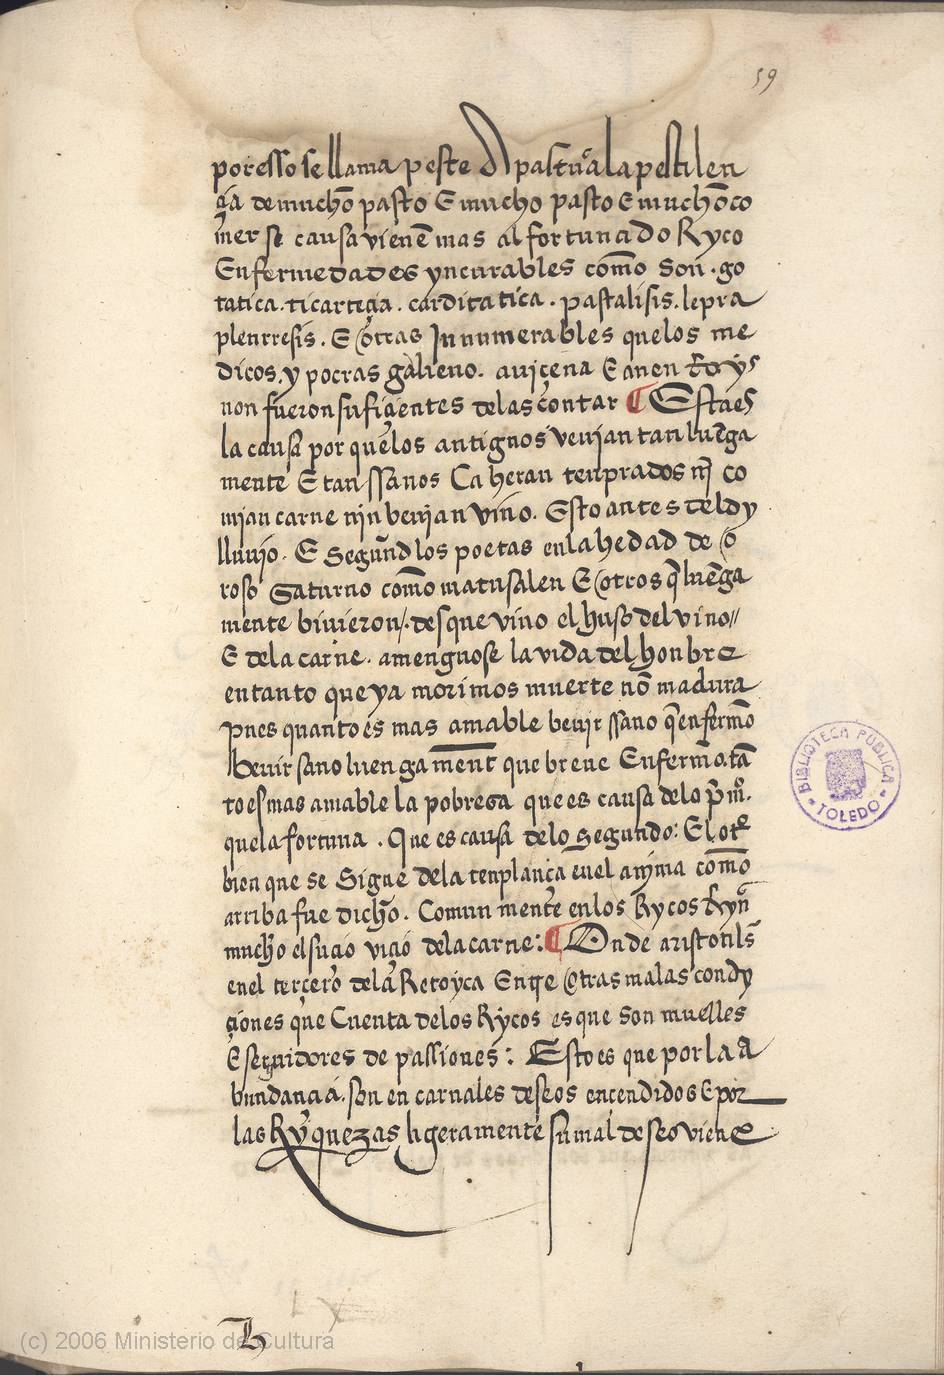 59
por esso se llama peste A pastura la pestilen
çia de muchõ pasto E mucho pasto E muchõ co
mer se causa vienẽ mas al fortunado Ryco
Enfermedades yncurables como son . go
ta tica . ticartega . carditatica . pastalisis . lepra
plenrresis . E otras Innumerables que los me
dicos . y pocras galieno . avicena E
non fueron sufiçientes de las contar ¶ Esta es
la causa por que los antiguos veujan tan luẽga
mente E tan ssanos Ca heran tenprados nj̃ co
mjan carne njn bevjan vino . Esto antes del dy
lluujo . E Segũnd los poetas en la hedad de o
roso Saturno como matusalen E otros q̃ luẽga
mente biuieron /. desque vino el huso del vino //
E de la carne . amenguose la vida del honbre
en tanto que ya morimos muerte nõ madura
Pues quanto es mas amable beujr ssano q̃ enfermo
beuir sano luengament que breue Enfermo . tã
to es mas amable la pobreza que es causa de lo p̃mº.
que la fortuna . Que es causa de lo segundo : El otº
bien que se Sigue de la tenplança en el anjma como
arriba fue dicho . Comun mente en los Rycos Reyna
mucho el suçio viçio de la carne : ¶ Onde aristotiles
en el terçero de la Retoyca Entre otras malas condy
çiones que Cuenta de los Rycos es que son muelles
E seguidores de passiones : Esto es que por la a
bundançia . son en carnales deseos ençendidos E por
las Ryquezas ligeramente su mal deseo viene
BIBLIOTECA PUBLICA
TOLEDO
(c) 2006 Ministerio de Cultura